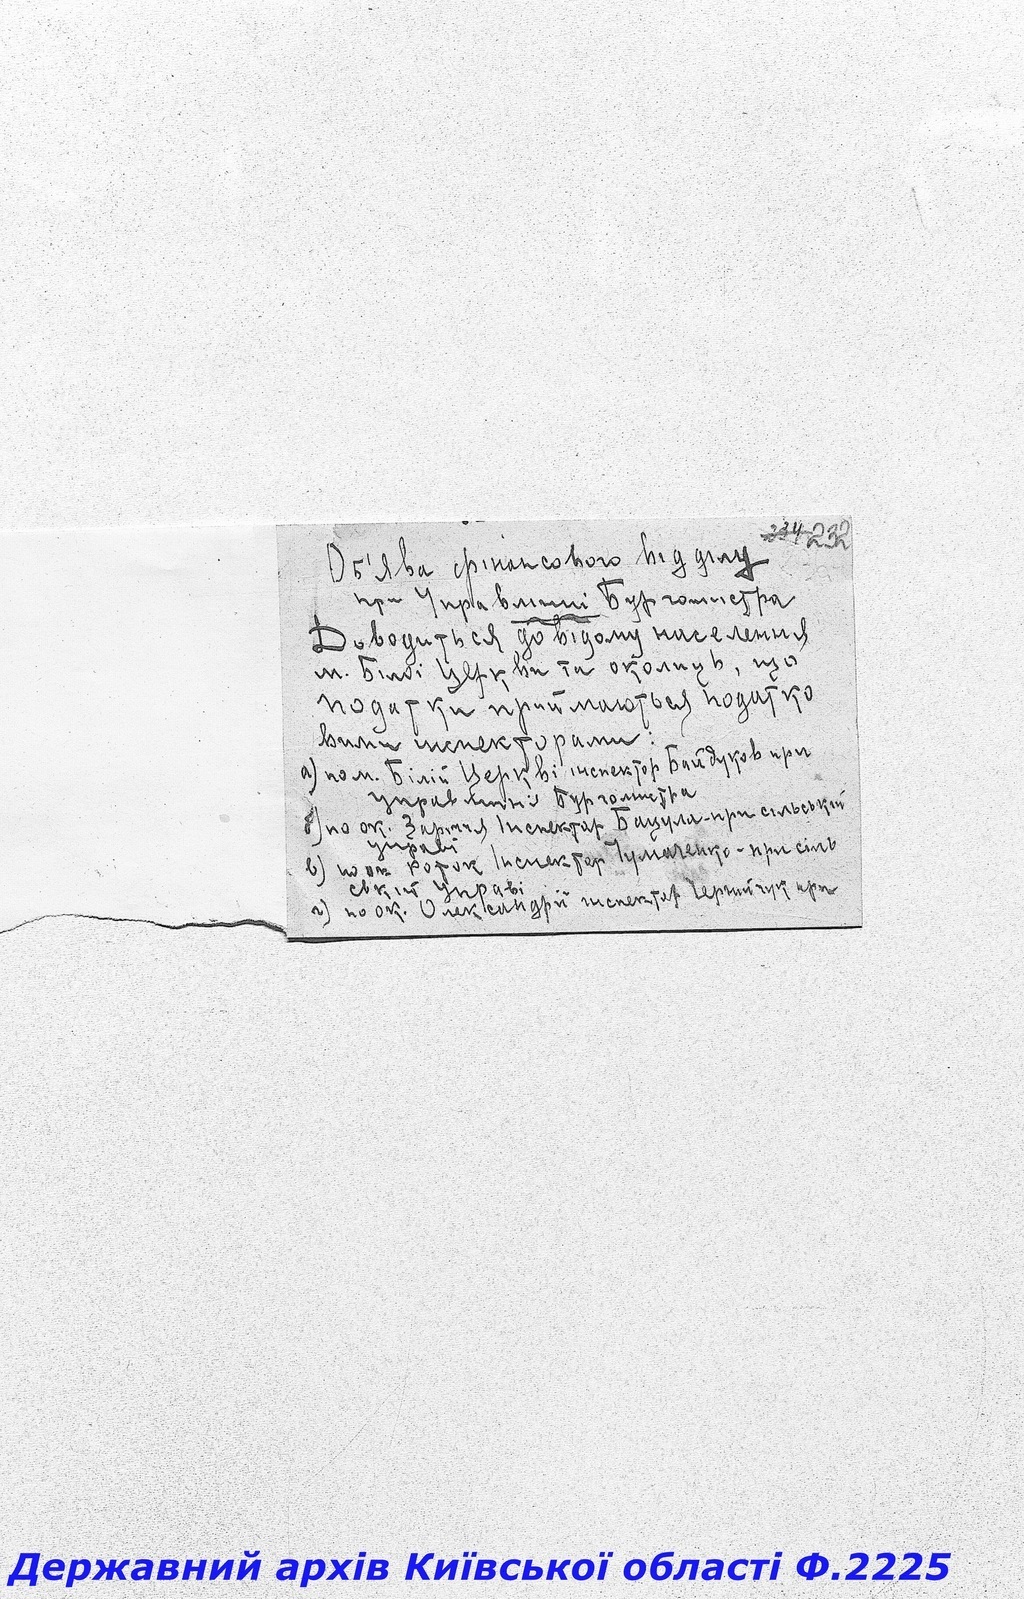 234 232
Об'ява фінансового відділу
при Управлінні Бургомистра
Доводиться до відому населення
м. Білої Церкви та околиць, що
податки приймаються податко
вими инспекторами:
а) по м. Білій Церкві інспектор Байдуков при
управлінні Бургомистра
б) по ок. Заріччя Інспектор Бацула - при сільській
управі
в) по ок Роток Інспектор Чумаченко - при сіль
ській управі
г) по ок. Олександрії инспектор Чернійчук при
Державний архів Київської області Ф.2225